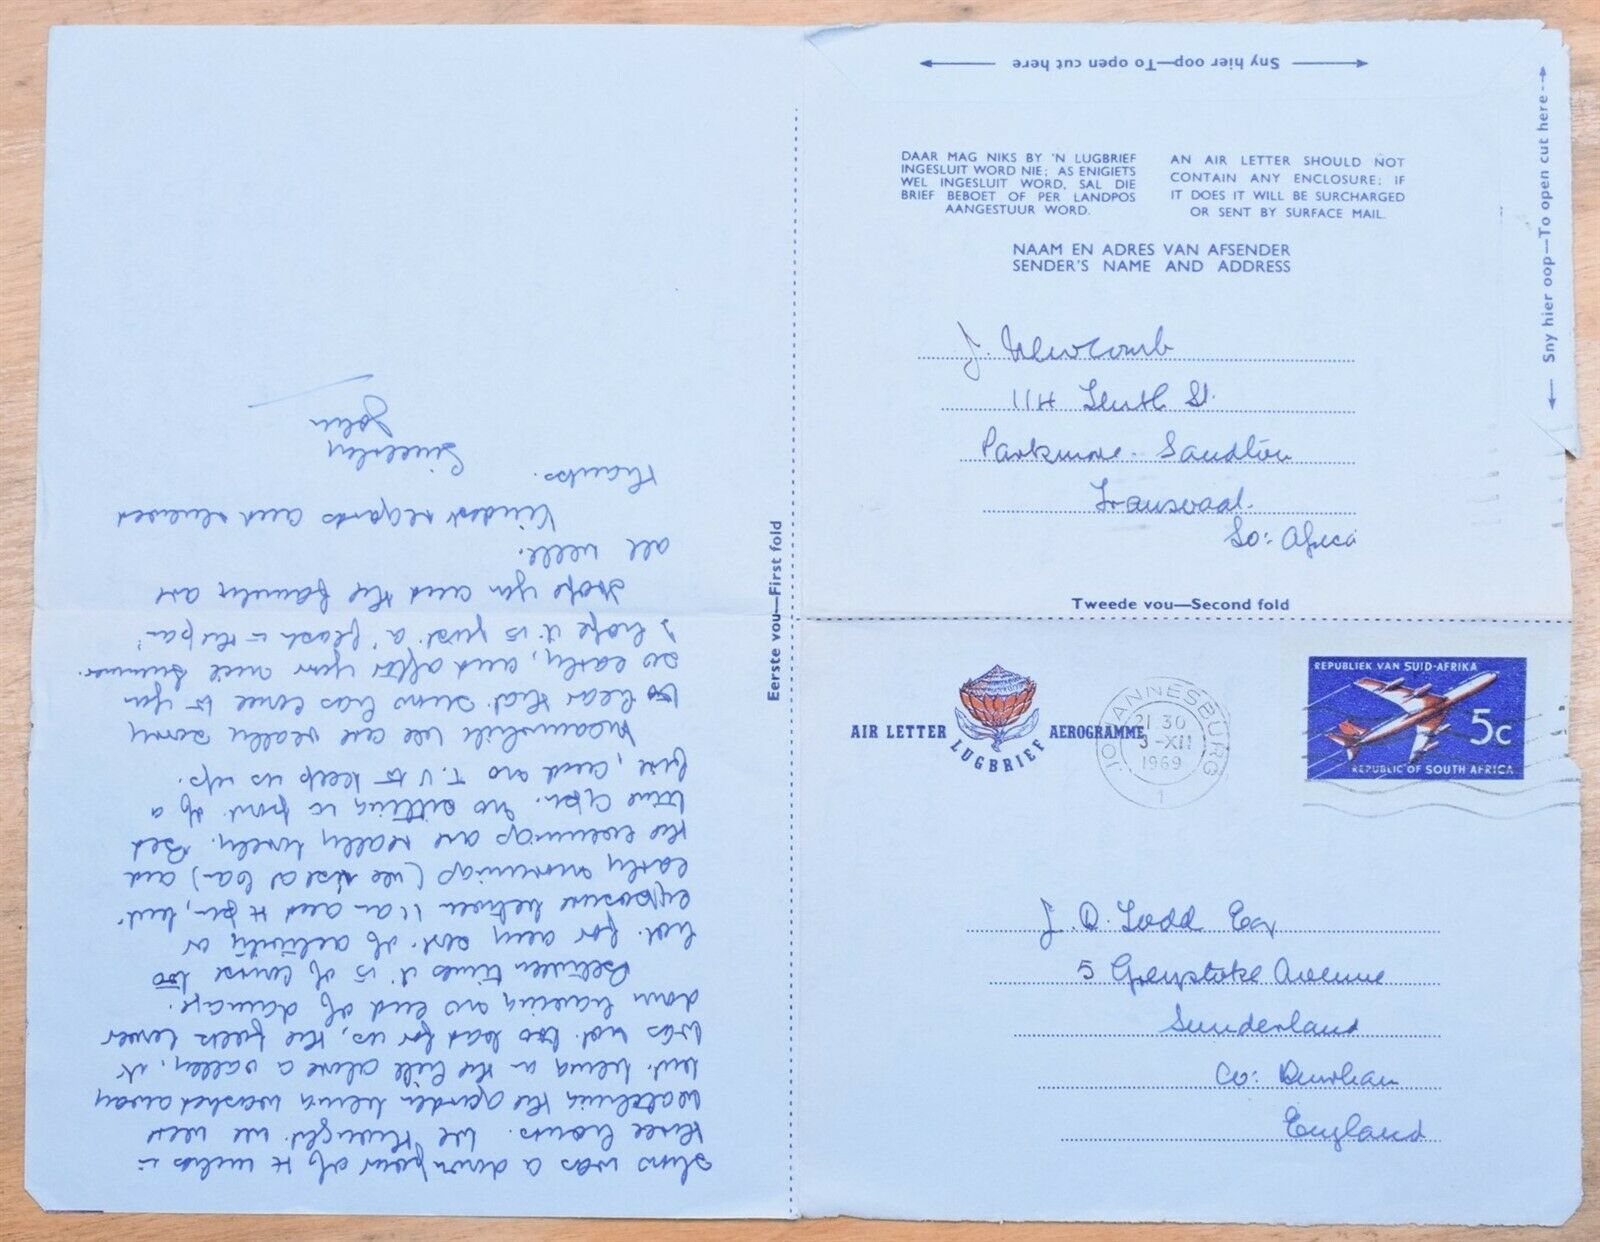 Sny hier oop—To open cut here
Sny hier oop—To open cut here
DAAR MAG NIKS BY 'N LUGBRIEF
INGESLUIT WORD NIE; AS ENIGIETS
WEL INGESLUIT WORD, SAL DIE
BRIEF BEBOET OF PER LANDPOS
AANGESTUUR WORD.
AN AIR LETTER SHOULD NOT
CONTAIN ANY ENCLOSURE; IF
IT DOES IT WILL BE SURCHARGED
OR SENT BY SURFACE MAIL.
NAAM EN ADRES VAN AFSENDER
SENDER'S NAME AND ADDRESS
J. Newcomb
114 Tenth St.
Parkmore. Sandton
Transvaal.
So: Africa
Tweede vou—Second fold
Eerste vou—First fold
AIR LETTER
LUGBRIEF
AEROGRAMME
JOHANNESBURG
21 30
3-XII
1969
1
REPUBLIEK VAN SUID-AFRIKA
5c
REPUBLIC OF SOUTH AFRICA
J. D. Todd Esq
5 Greystoke Avenue
Sunderland
Co: Durham
England
was a downpour of 4 inches in
three hours. We thought we were
watching the garden being washed away
but being on the hill above a valley, it
was not too bad for us, the folks lower
down having no end of damage.
Between times it is of course too
hot for any sort of activity or
exposure between 11 am and 4 pm, but
early mornings (we rise at 6am) and
the evenings are really lovely. Bed
time 9pm. No sitting in front of a
fire, and no T.V to keep us up.
Meanwhile we are really sorry
to hear that snow has come to you
so early, and after your nice summer.
I hope it is just a 'flash in the pan'
Hope you and the family are
all well.
Kindest regards and renewed
thanks.
Sincerely
John